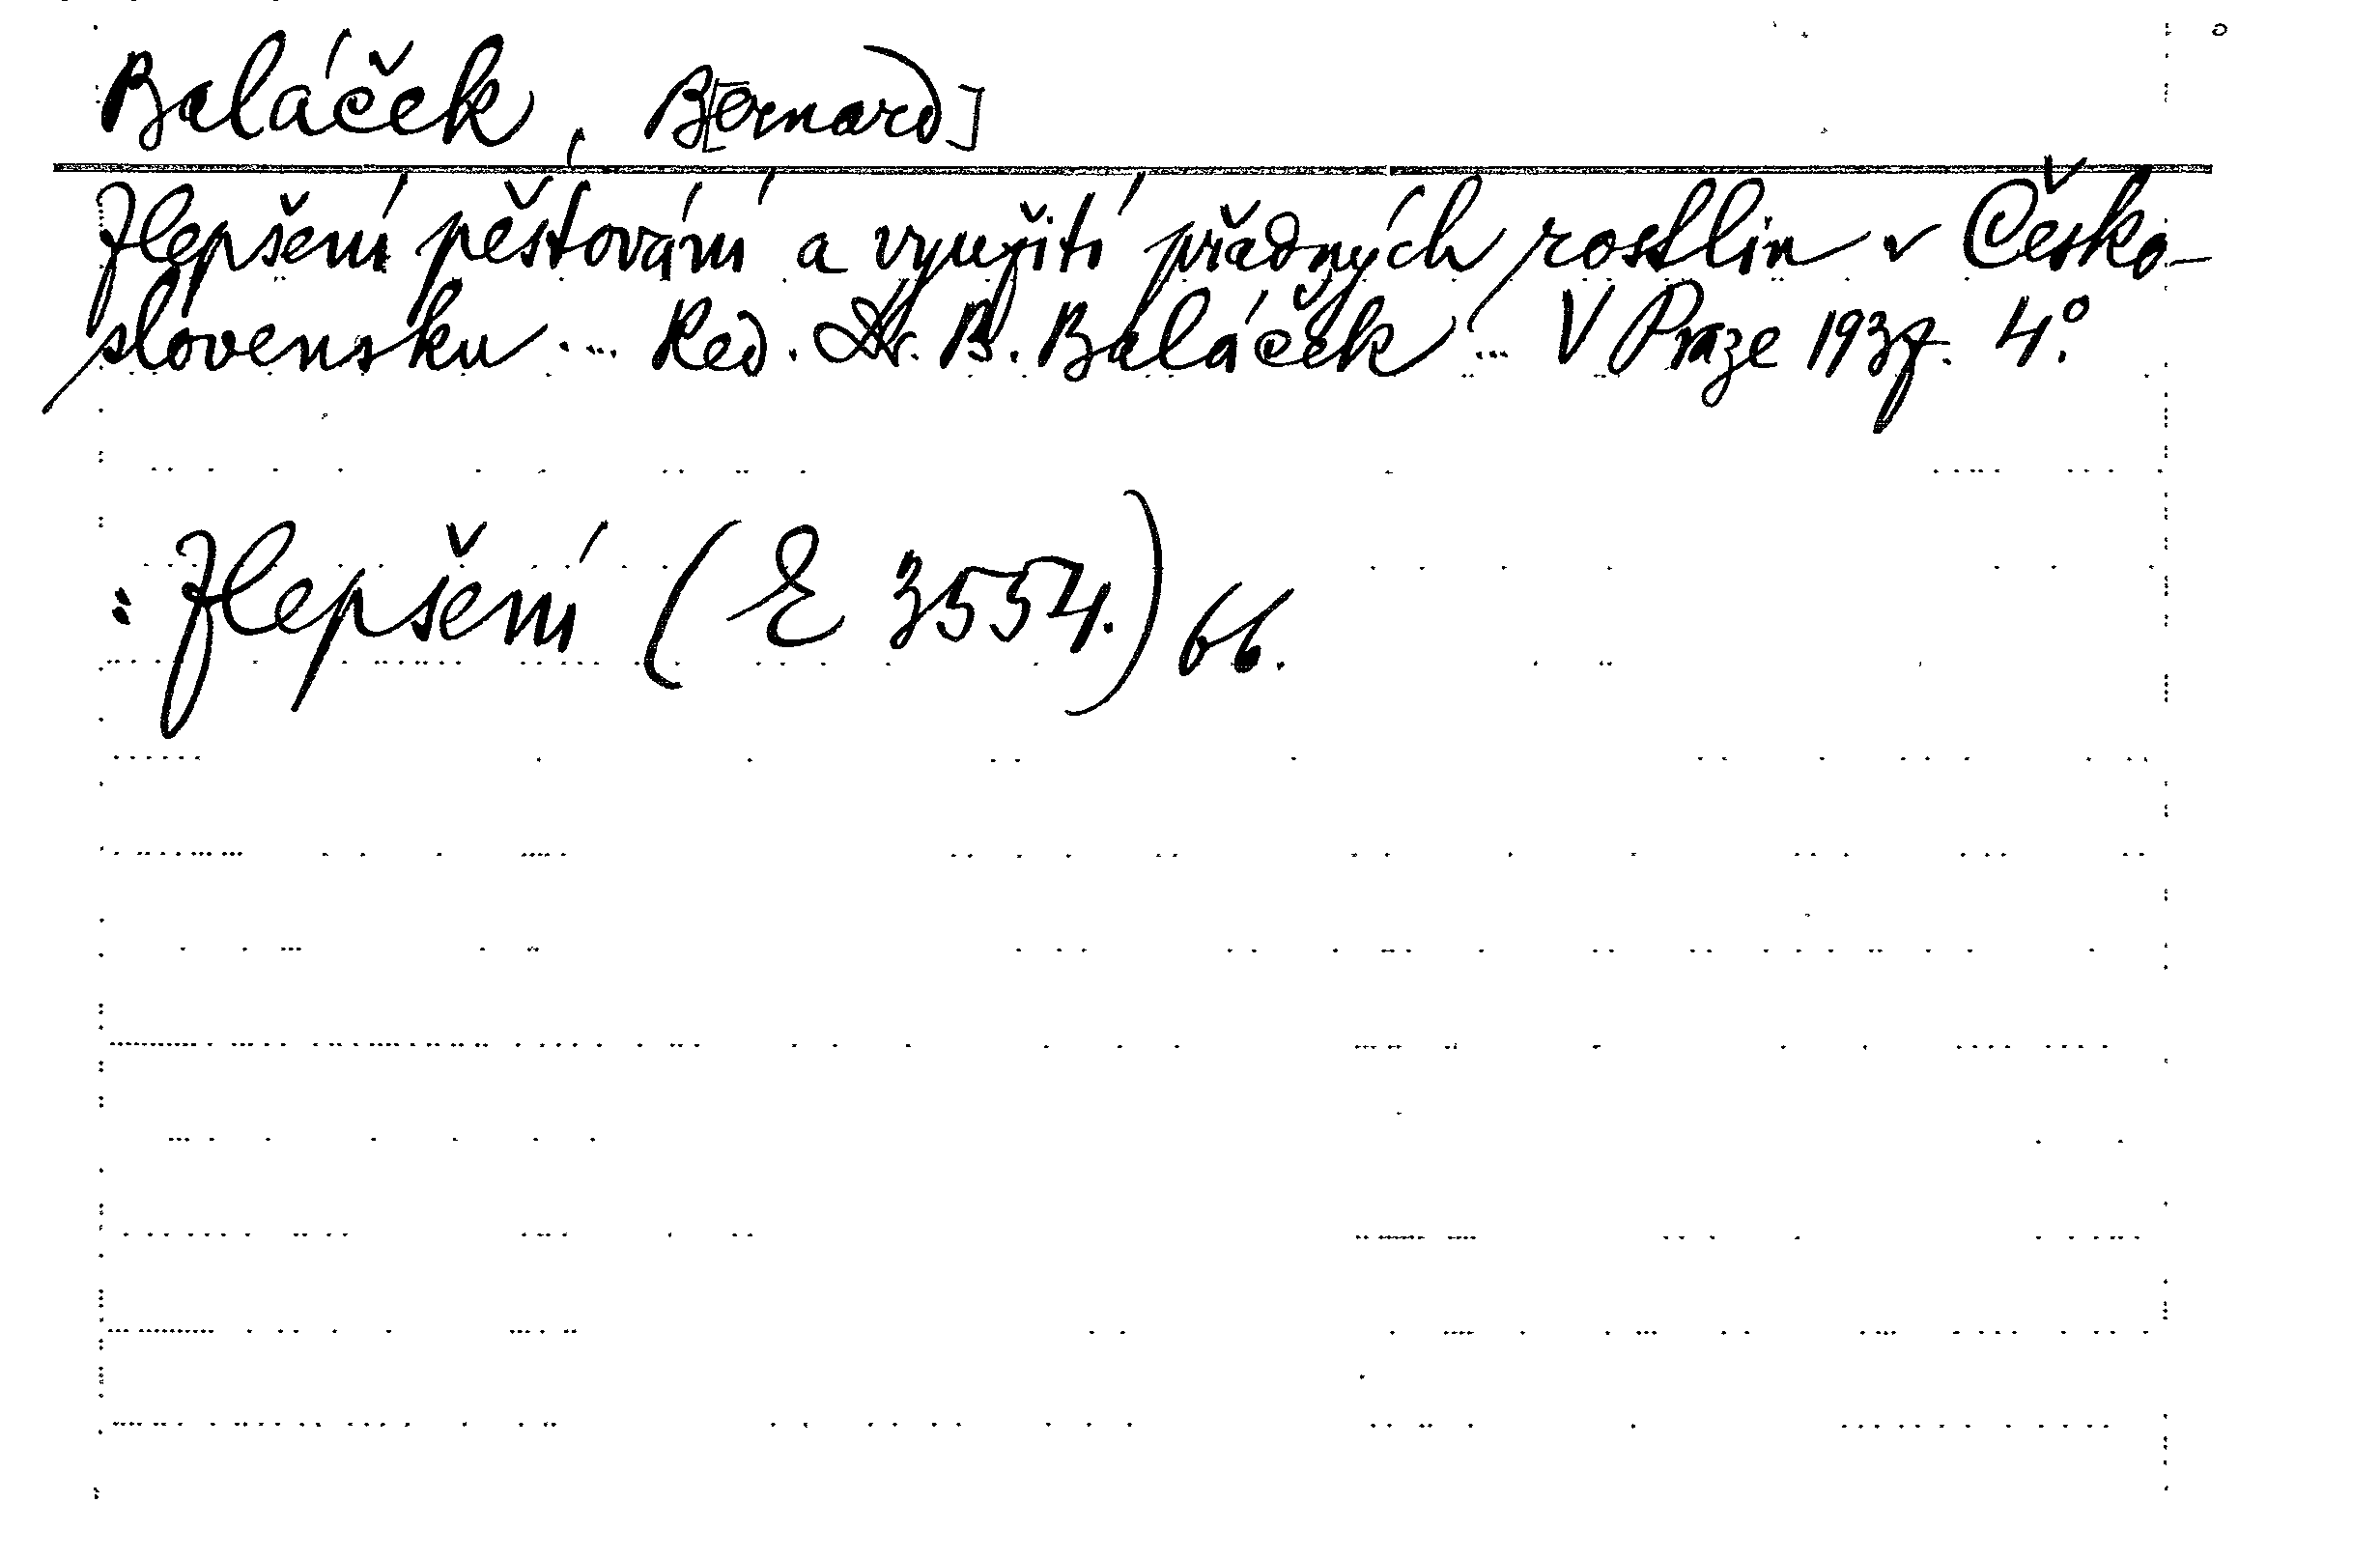 Baláček, B[ernard]
Zlepšení pěstování a využití přadných rostlin v Česko-
slovensku ... Red. Dr. B. Baláček ... V Praze 1937. 4°.
: Zlepšení (E 3554.) 66.